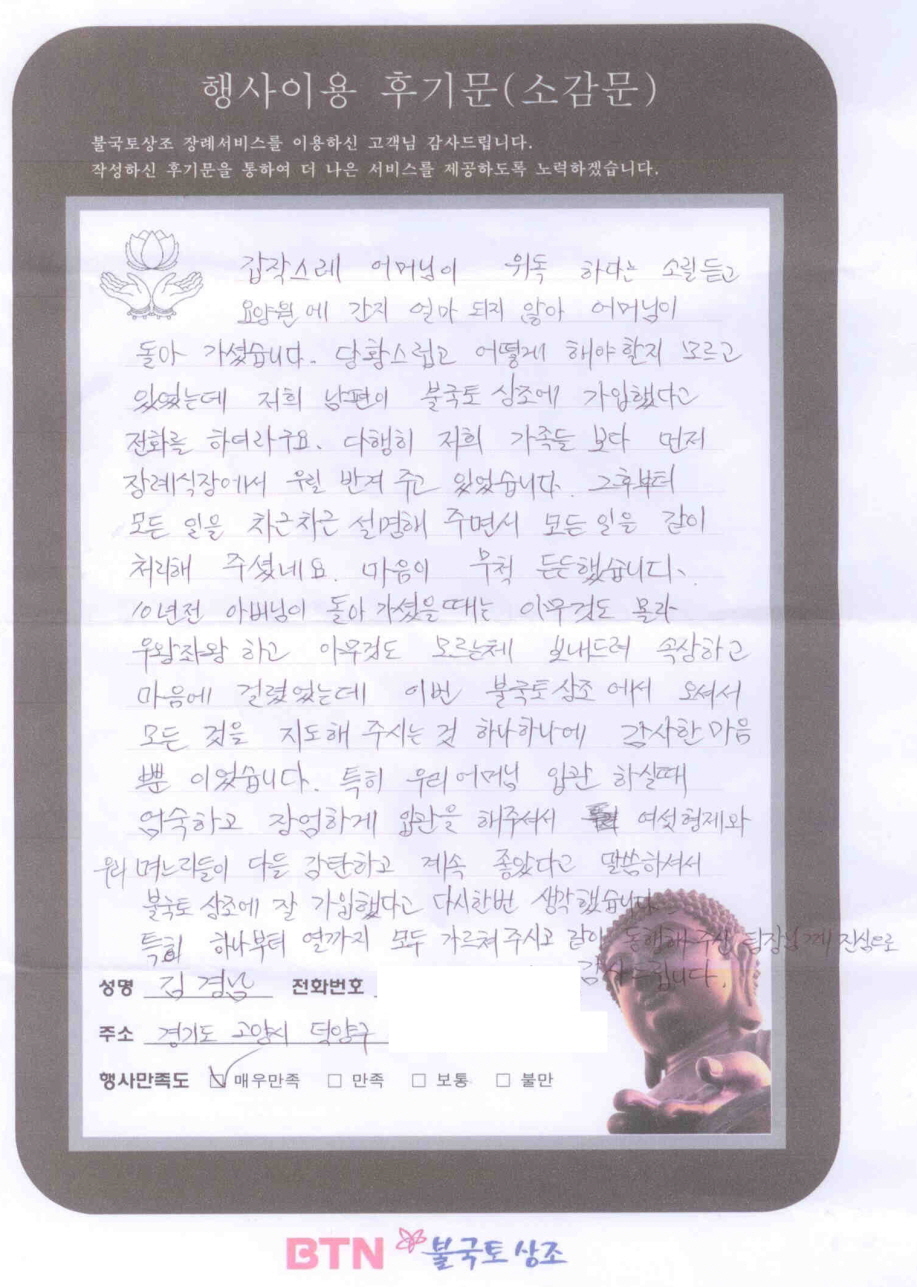 행사이용 후기문(소감문)
불국토상조 장례서비스를 이용하신 고객님 감사드립니다.
작성하신 후기문을 통하여 더 나은 서비스를 제공하도록 노력하겠습니다.
갑작스레 어머님이 위독 하다는 소릴 듣고
요양원에 간지 얼마 되지 않아 어머님이
돌아 가셨습니다. 당황스럽고 어떻게 해야할지 모르고
있었는데 저희 남편이 불국토 상조에 가입했다고
전화를 하더라구요. 다행히 저희 가족들 보다 먼저
장례식장에서 우릴 반겨 주고 있었습니다. 그후부터
모든 일을 차근차근 설명해 주면서 모든 일을 같이
처리해 주셨네요. 마음이 무척 든든했습니다.
10년전 아버님이 돌아 가셨을때는 아무것도 몰라
우왕좌왕 하고 아무것도 모르는체 보내드려 속상하고
마음에 걸렸었는데 이번 불국토상조 에서 오셔서
모든 것을 지도해 주시는 것 하나하나에 감사한 마음
뿐 이었습니다. 특히 우리어머님 입관 하실때
엄숙하고 장엄하게 입관을 해주셔서 여섯형제와
우리 며느리들이 다들 감탄하고 계속 좋았다고 말씀하셔서
불국토 상조에 잘 가입했다고 다시한번 생각했습니다
특히 하나부터 열까지 모두 가르쳐주시고 같이 동행해 주신 팀장님께 진심으로
감사드립니다.
성명 김경남 전화번호
주소 경기도 고양시 덕양구
행사만족도 ☑ 매우만족 □ 만족 □ 보통 □ 불만
BTN 불국토상조